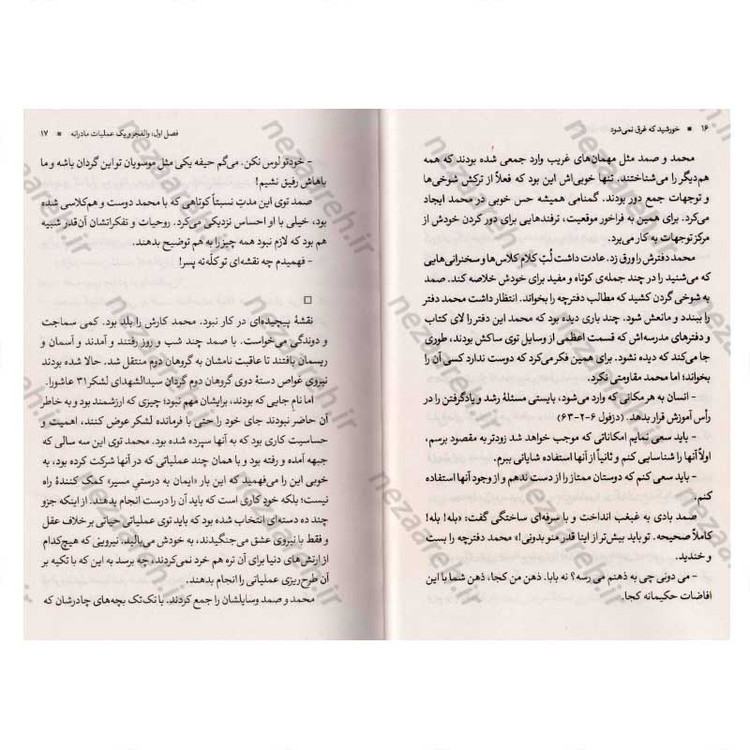 ۱۶ ■ خورشید که غرق نمی‌شود
محمد و صمد مثل مهمان‌های غریب وارد جمعی شده بودند که همه
هم‌دیگر را می‌شناختند. تنها خوبی‌اش این بود که فعلاً از ترکش شوخی‌ها
و توجهات جمع دور بودند. گمنامی همیشه حس خوبی در محمد ایجاد
می‌کرد. برای همین به فراخور موقعیت، ترفندهایی برای دور کردن خودش از
مرکز توجهات به کار می‌برد.
محمد دفترش را ورق زد. عادت داشت لُبّ کلام کلاس‌ها و سخنرانی‌هایی
که می‌شنید را در چند جمله‌ی کوتاه و مفید برای خودش خلاصه کند. صمد
به شوخی گردن کشید که مطالب دفترچه را بخواند. انتظار داشت محمد دفتر
را ببندد و مانعش شود. چند باری دیده بود که محمد این دفتر را لای کتاب
و دفترهای مدرسه‌اش که قسمت اعظمی از وسایل توی ساکش بودند، طوری
جا می‌کند که دیده نشود. برای همین فکر می‌کرد که دوست ندارد کسی آن را
بخواند؛ اما محمد مقاومتی نکرد.
- انسان به هر مکانی که وارد می‌شود، بایستی مسئلهٔ رشد و یادگرفتن را در
رأس آموزش قرار بدهد. (دزفول ۶-۲-۶۳)
- باید سعی نمایم امکاناتی که موجب خواهد شد زودتر به مقصود برسم،
اولاً آنها را شناسایی کنم و ثانیاً از آنها استفاده شایانی ببرم.
- باید سعی کنم که دوستان ممتاز را از دست ندهم و از وجود آنها استفاده
کنم.
صمد بادی به غبغب انداخت و با سرفه‌ای ساختگی گفت: «بله! بله!
کاملاً صحیحه. تو باید بیش‌تر از اینا قدر منو بدونی!» محمد دفترچه را بست
و خندید.
- می دونی چی به ذهنم می رسه؟ نه بابا. ذهن من کجا، ذهن شما با این
افاضات حکیمانه کجا.
فصل اول: والفجر و یک عملیات مادرانه ■ ۱۷
- خودتو لوس نکن. می‌گم حیفه یکی مثل موسویان تو این گردان باشه و ما
باهاش رفیق نشیم!
صمد توی این مدتِ نسبتاً کوتاهی که با محمد دوست و هم‌کلاسی شده
بود، خیلی با او احساس نزدیکی می‌کرد. روحیات و تفکراتشان آن‌قدر شبیه
هم بود که لازم نبود همه چیز را به هم توضیح بدهند.
- فهمیدم چه نقشه‌ای تو کلّه‌ته پسر!
□
نقشهٔ پیچیده‌ای در کار نبود. محمد کارش را بلد بود. کمی سماجت
و دوندگی می‌خواست. با صمد چند شب و روز رفتند و آمدند و آسمان و
ریسمان بافتند تا عاقبت نامشان به گروهان دوم منتقل شد. حالا شده بودند
نیروی غواص دستهٔ دوی گروهان دوم گردان سیدالشهدای لشکر ۳۱ عاشورا.
اما نامِ جایی که بودند، برایشان مهم نبود؛ چیزی که ارزشمند بود و به خاطر
آن حاضر نبودند جای خود را حتی با فرمانده لشکر عوض کنند، اهمیت و
حساسیت کاری بود که به آنها سپرده شده بود. محمد توی این سه سالی که
جبهه آمده و رفته بود و با همان چند عملیاتی که در آنها شرکت کرده بود، به
خوبی این را می‌فهمید که این بار «ایمان به درستیِ مسیر» کمک کنندهٔ راه
نیست؛ بلکه خودِ کاری است که باید آن را درست انجام بدهند. از اینکه جزو
چند ده دسته‌ای انتخاب شده بود که باید توی عملیاتی حیاتی بر خلاف عقل
و فقط با نیروی عشق می‌جنگیدند، به خودش می‌بالید. نیرویی که هیچ‌کدام
از ارتش‌های دنیا برای آن تره هم خرد نمی‌کردند، چه برسد به این که با تکیه بر
آن طرح‌ریزی عملیاتی را انجام بدهند.
محمد و صمد وسایلشان را جمع کردند. با تک‌تک بچه‌های چادرشان که
nezareh.ir